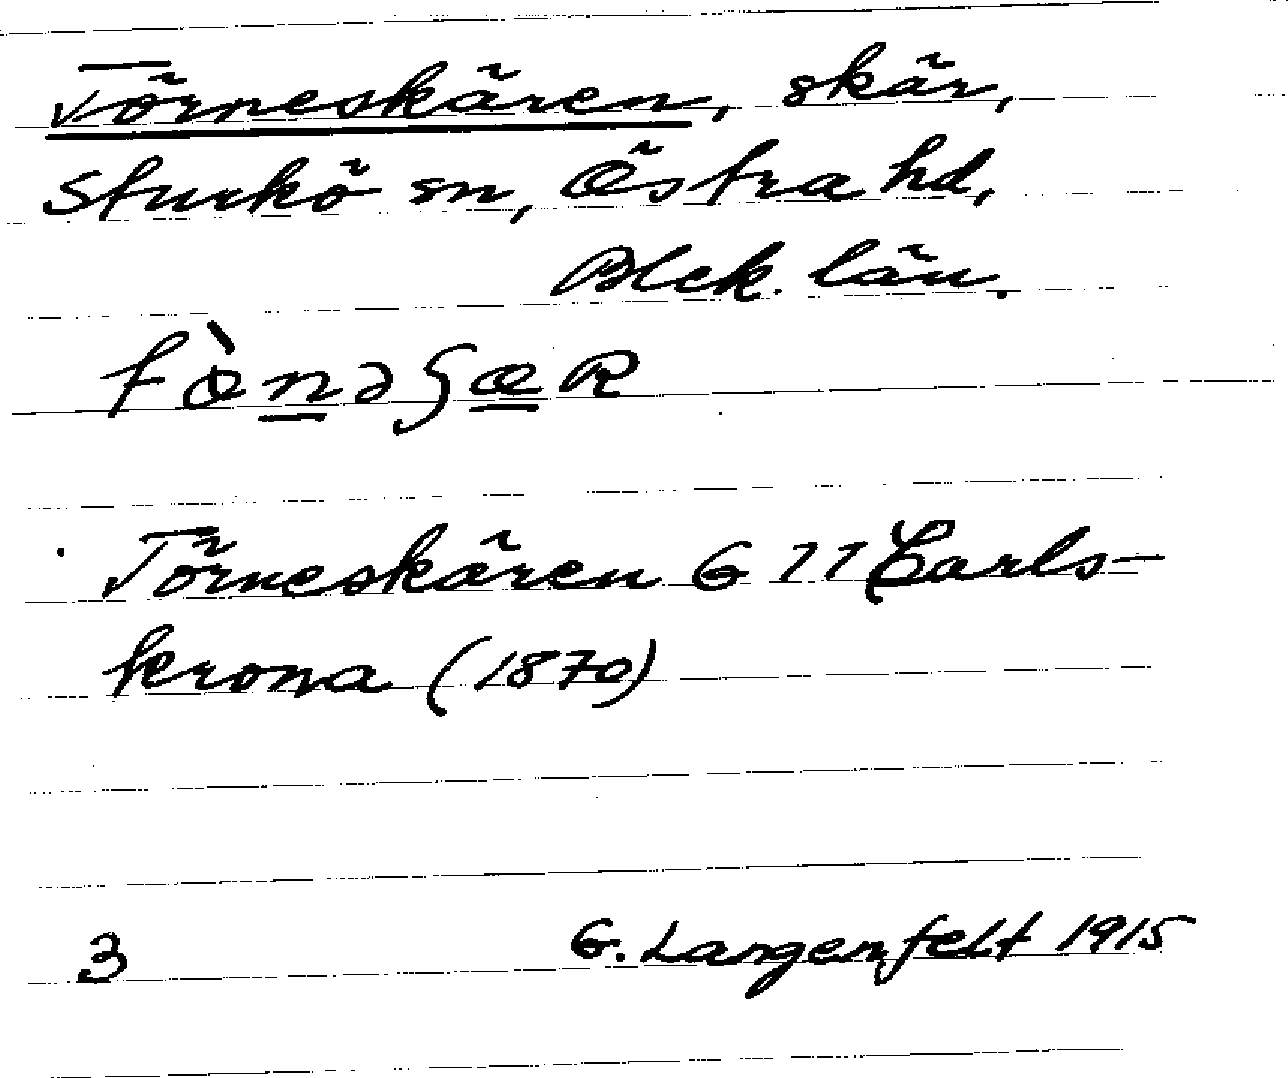 Törneskären, skär,
Sturkö sn, Östra hd,
Blek. län.
Törneskären G 77 Carls-
krona (1870)
3 G. Langenfelt 1915